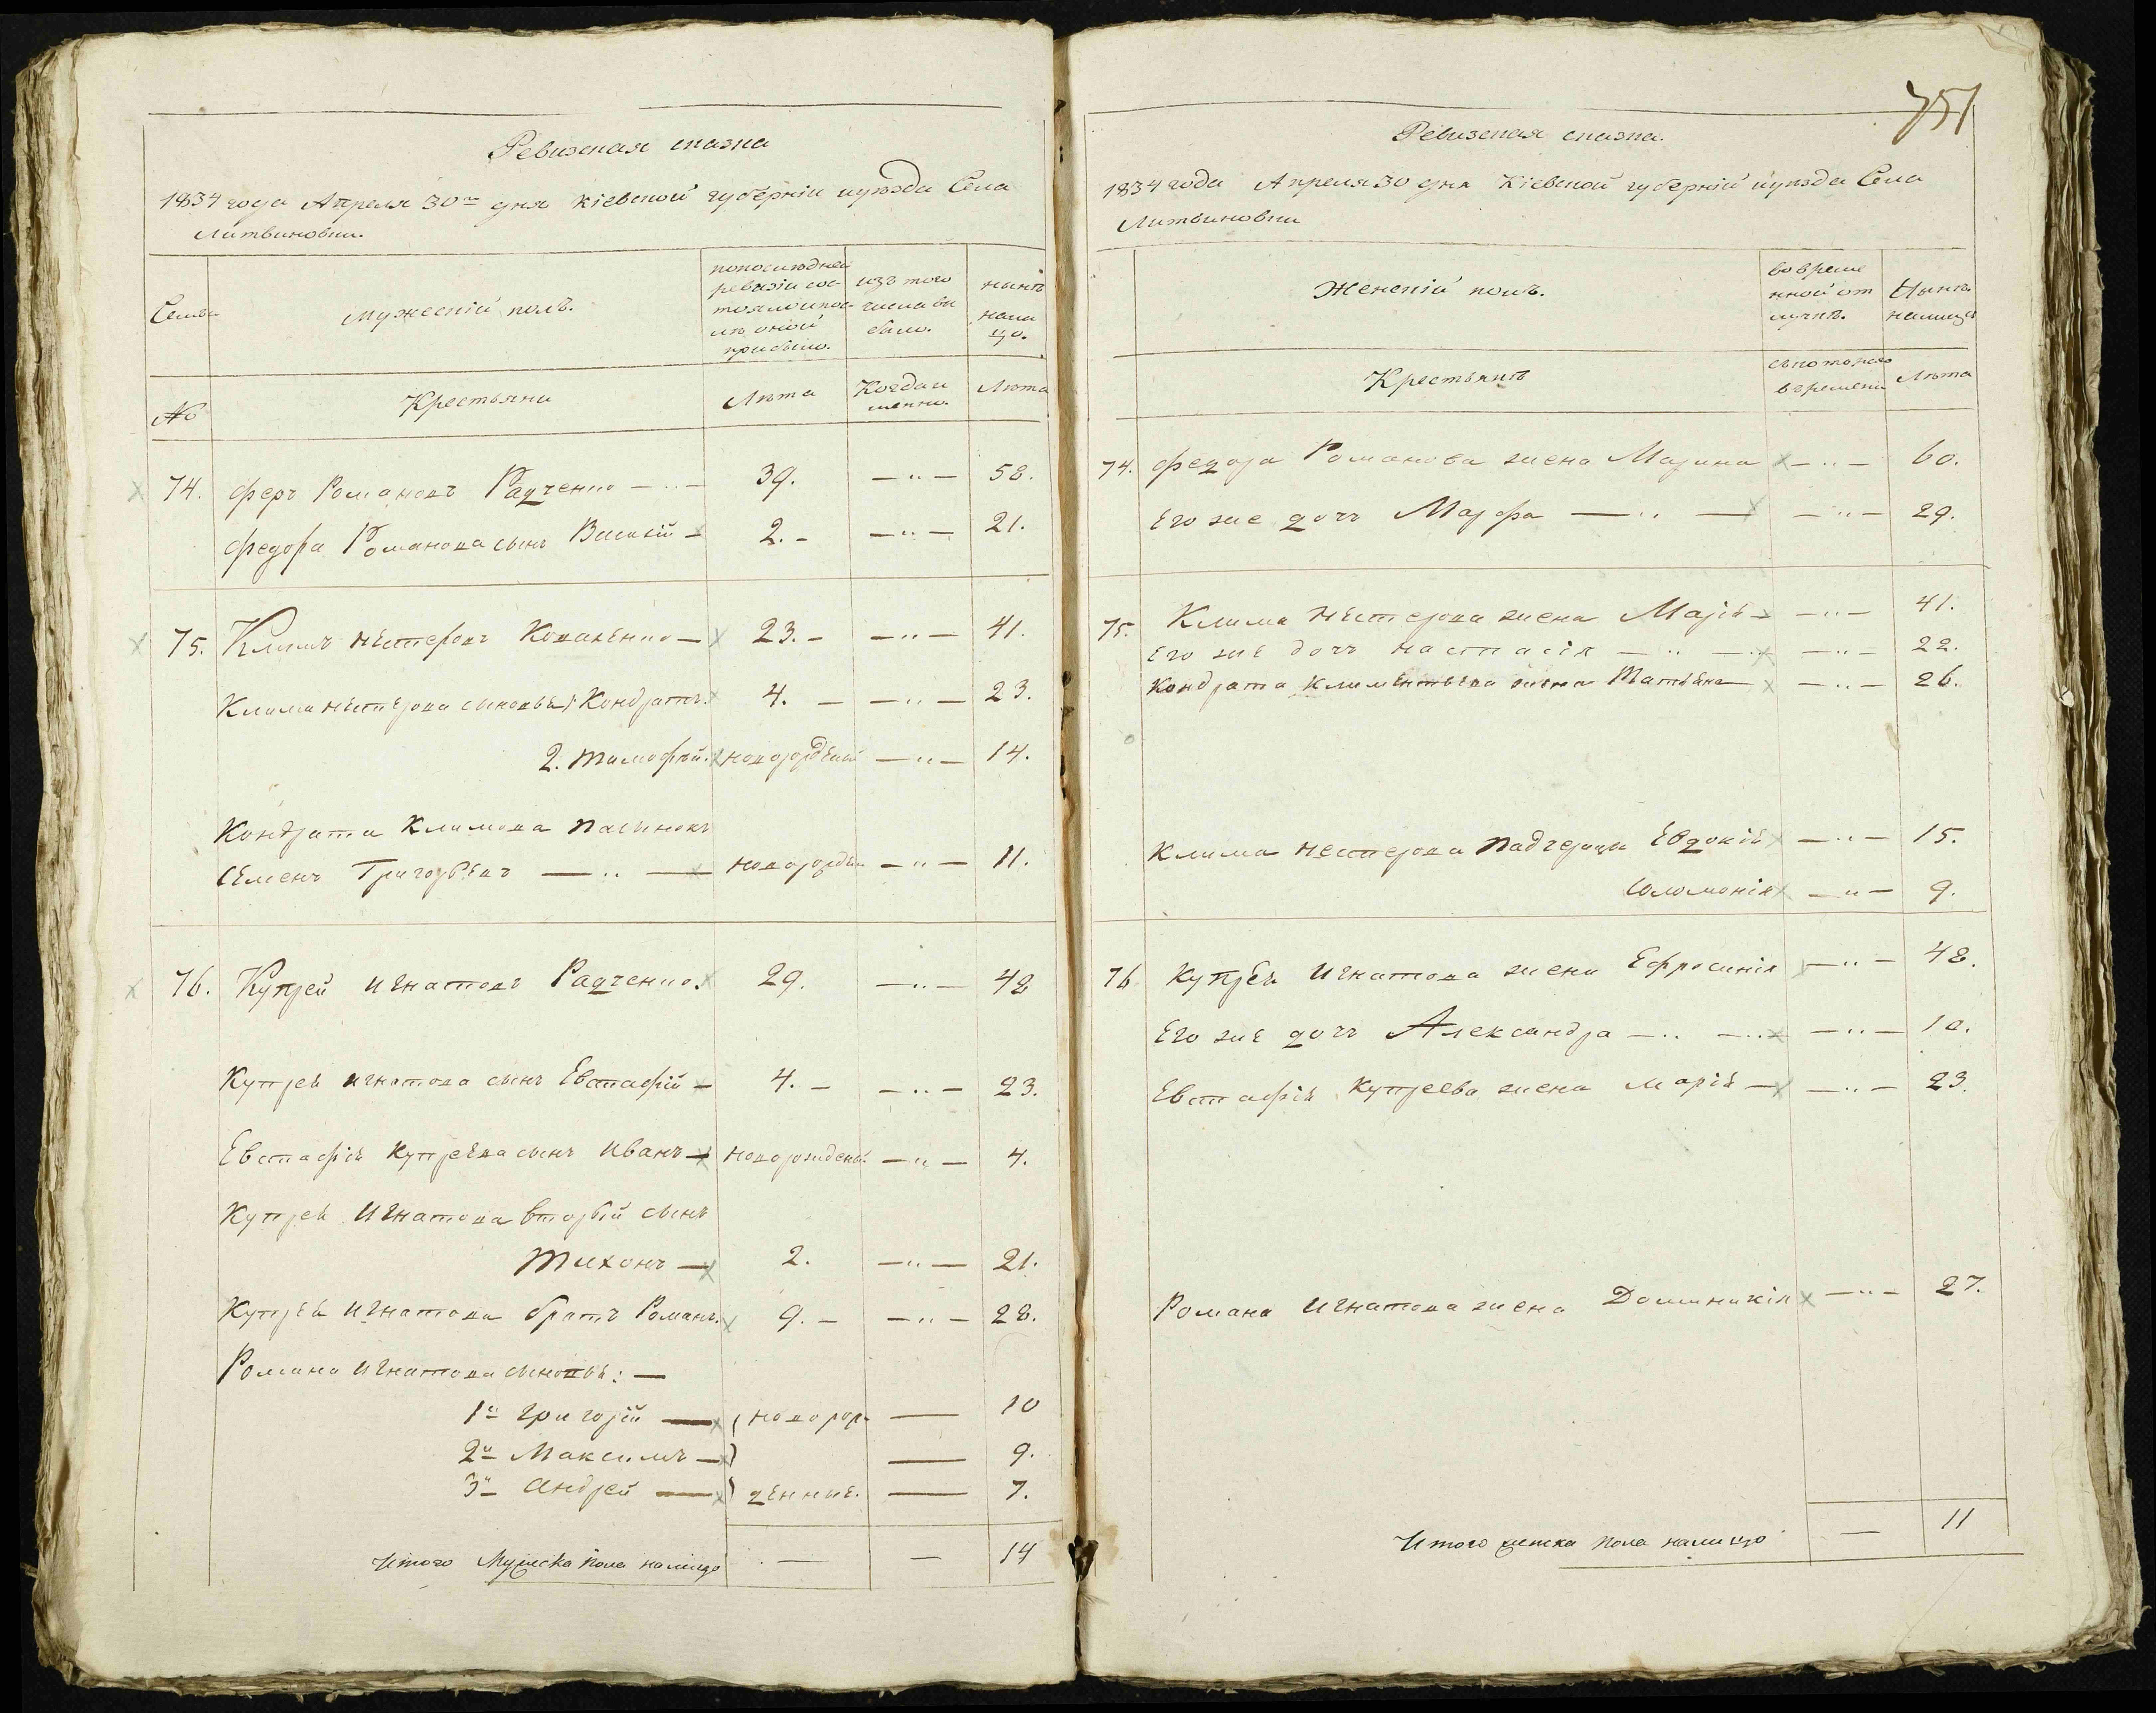 Ревизская сказка
1834 года Апреля 30го дня Кіевской губерніи и уѣзда Села
Литвиновки.
Семьи
Мужескій полъ.
по последней ревизіи состояло и после оной прибыло.
изъ того числа выбыло.
нынѣ на лицо.
№
Крестьяни
Лѣта
Когда именно.
Лѣта
74. Федръ Романовъ Радченко — 39. —"— 58.
Федора Романова сынъ Василій — 2. —"— 21.
75. Климъ Нестеровъ Коваленко — 23. —"— 41.
Клима Нестерова сыновья 1. Кондратъ. 4. —"— 23.
2. Тимофѣй. новорожденый —"— 14.
Кондрата Климова пасынокъ
Семенъ Григорьевъ —"— новорожден —"— 11.
76. Купрей Игнатовъ Радченко. 29. —"— 48
Купрея Игнатова сынъ Евстафій — 4. —"— 23.
Евстафія Купреева сынъ Иванъ — новорожденый —"— 4.
Купрея Игнатова вторый сынъ
Тихонъ — 2. —"— 21.
Купрея Игнатова братъ Романъ. 9. —"— 28.
Романа Игнатова сыновья: —
1й Григорій — новорож — 10
2й Максимъ — — 9.
3й Андрей — денные. — 7.
Итого Мужеска пола налицо — — 14
751
Ревизская сказка.
1834 года Апреля 30 дня Кіевской губерніи и уѣзда Села
Литвиновки
Женскій полъ.
во временной отлучкѣ.
Нынѣ на лицо
Крестьянѣ
съ котораго времени
Лѣта
74. Федора Романова жена Марина —"— 60.
Его же дочь Марфа —"— —"— 29.
75. Клима Нестерова жена Марія —"— 41.
Его же дочь Настасія —"— —"— 22.
Кондрата Климентьева жена Татьяна —"— 26.
Клима Нестерова падчерицы Евдокія —"— 15.
Соломонія —"— 9.
76 Купрея Игнатова жена Ефросинія —"— 48.
Его же дочь Александра —"— —"— 10.
Евстафія Купреева жена Марія —"— 23.
Романа Игнатова жена Доминикія —"— 27.
Итого женска пола налицо — 11